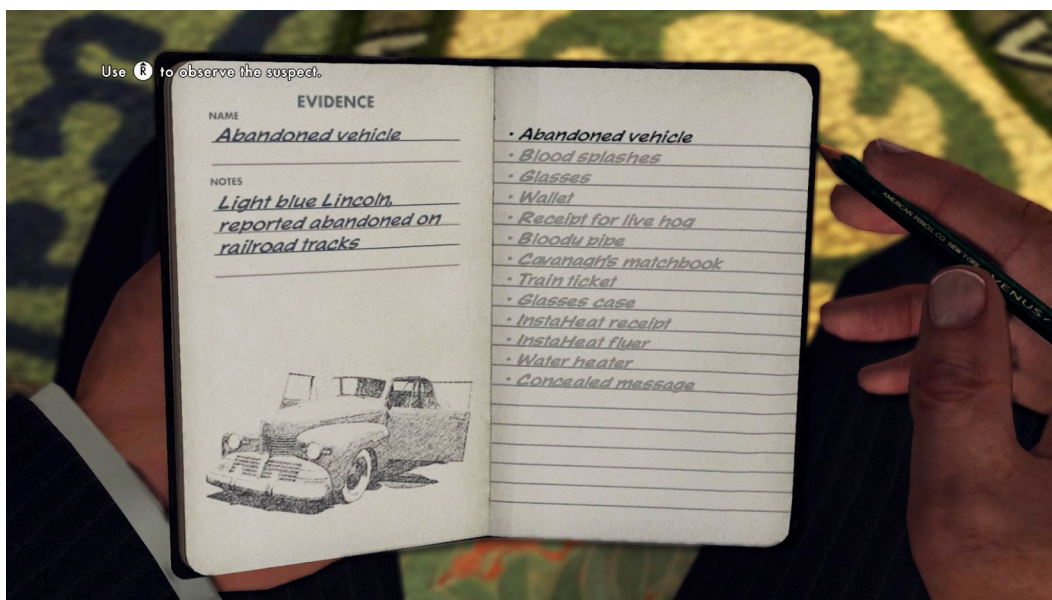 Use R to observe the suspect.
EVIDENCE
NAME
Abandoned vehicle
NOTES
Light blue Lincoln,
reported abandoned on
railroad tracks
· Abandoned vehicle
· Blood splashes
· Glasses
· Wallet
· Receipt for live hog
· Bloody pipe
· Cavanagh's matchbook
· Train ticket
· Glasses case
· InstaHeat receipt
· InstaHeat flyer
· Water heater
· Concealed message
AMERICAN PENCIL CO. NEW YORK VENUS